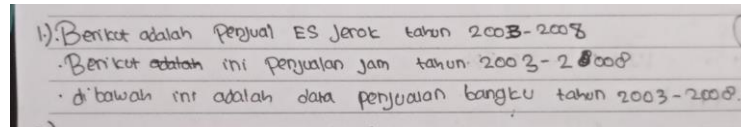 1.). Berikut adalah Penjual ES Jerok tahun 2003-2008
· Berikut adalah ini penjualan jam tahun 2003-2008
· di bawah ini adalah data penjualan bangku tahun 2003-2008.